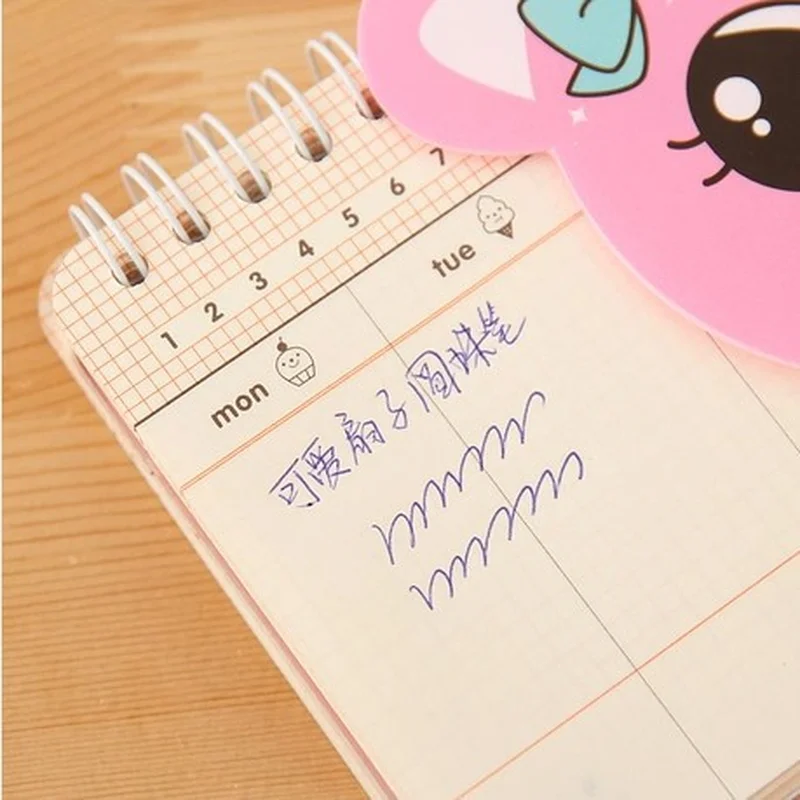 1 2 3 4 5 6 7
mon tue
可爱扇子圆珠笔